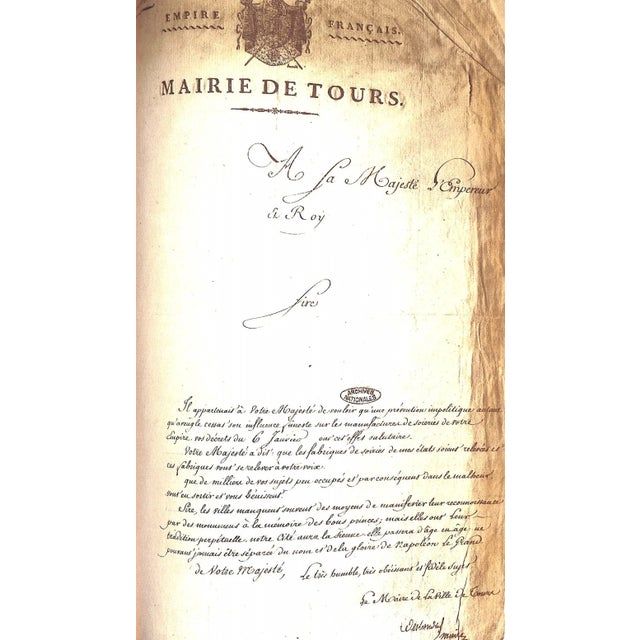 EMPIRE FRANÇAIS.
MAIRIE DE TOURS.
A Sa Majesté l'Empereur
Et Roy
Sire
ARCHIVES
NATIONALES
Il appartenait à Votre Majesté de vouloir qu'une prévention impolitique autant
qu'aveugle cessas son influence funeste sur les manufactures de soieries de votre
Empire, vos décrets du 6 Janvier ont cet effet salutaire.
Votre Majesté a dit que les fabriques de soieries de mes états soient relevées et
ces fabriques vont se relever à votre voix.
que de millier de vos sujets peu occupés et par conséquent dans le malheur
vont en sortir et vous bénissent.
Sire, les villes manquent souvent des moyens de manifester leur reconnoissance
par des monumens à la mémoire des bons princes; mais elles ont leur
tradition perpétuelle notre cité aura la sienne elle passera d'âge en âge ne
pouvant jamais être séparée du nom et de la gloire de Napoléon le Grand
de Votre Majesté, Le très humble, très obéissant et fidèle sujet
Le Maire de la Ville de Tours